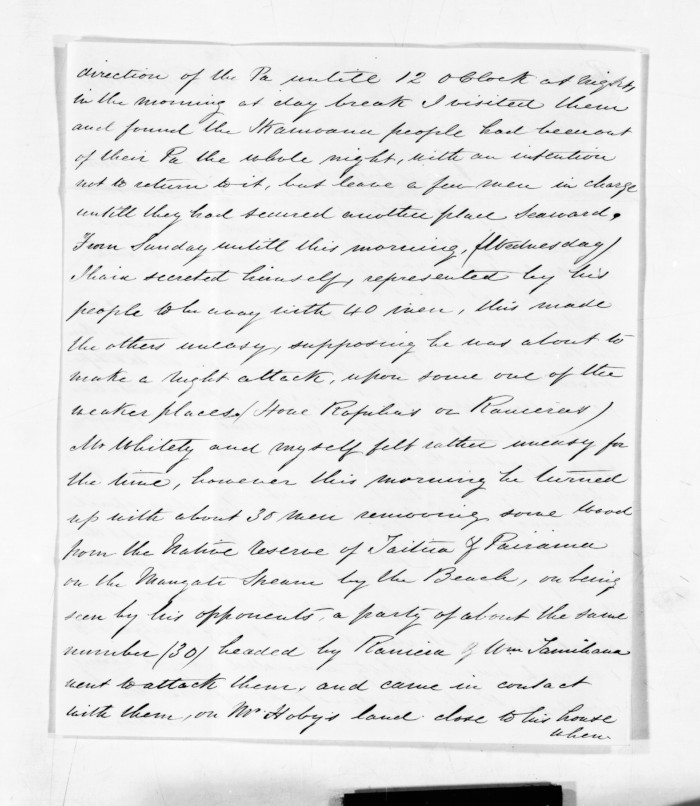 direction of the Pa untill 12 oClock at night,
in the morning at day break I visited them
and found the Ikamoana people had been out
of their Pa the whole night, with an intention
not to return to it, but leave a few men in charge
untill they had secured another place Seaward.
From Sunday untill this morning, (Wednesday)
Ihaia secreted himself, represented by his
people to be away with 40 men, this made
the others uneasy, supposing he was about to
make a night attack, upon some one of the
weaker places (Hone Ropihas or Ranieras)
Mr Whitely and myself felt rather uneasy for
the time, however this morning he turned
up with about 30 men removing some wood
from the Native reserve of Taitua & Pairama
on the Mangati Stream by the Beach, on being
seen by his opponents, a party of about the same
number (30) headed by Raniera & Wm Tamihana
went to attack them, and came in contact
with them, on Mr Hoby's land close to his house
when